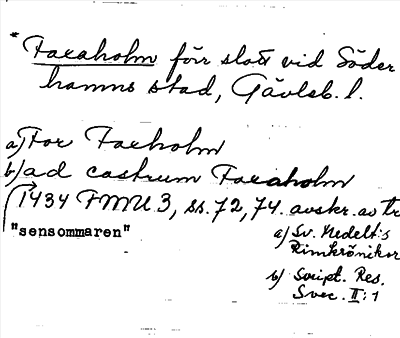 * Faxaholm förr slott vid Söder
hamns stad, Gävleb. l.
a) Ffor Faxholm
b) ad castrum Faxaholm
1434 FMU 3, ss. 72, 74. avskr. av tr
"sensommaren"
a) Sv. Medelt:s
Rimkrönikor
b) Script. Res.
Svec. II:1